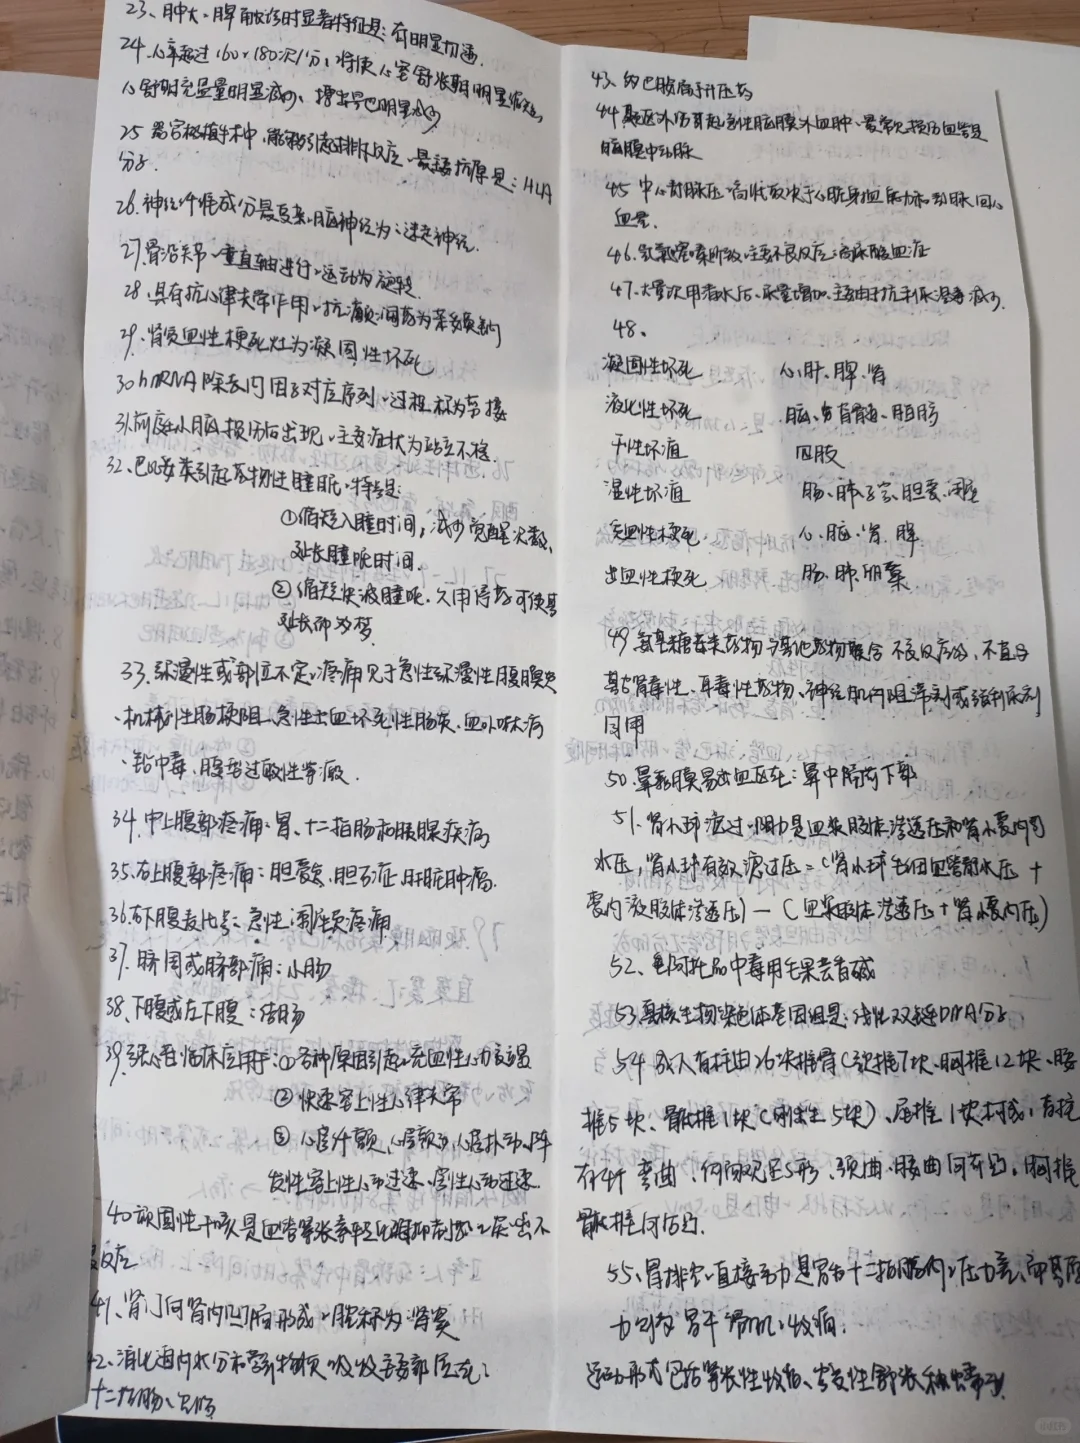 23、肿大、脾触诊时显著特征是:有明显切迹
24.心率超过160~180次/分,将使心室舒张期明显缩短,
心舒期充盈量明显减少、搏出量也明显减少
25 器官移植手术中,能够引起排斥反应、最强抗原是:HLA
分子.
26.神经纤维成分最复杂、脑神经为:迷走神经.
27.骨沿关节、垂直轴进行、运动为旋转.
28.具有抗心律失常作用、抗癫痫药为苯妥英钠
29.肾贫血性梗死灶为凝固性坏死
30 hnRNA除去内因子对应序列、过程称为剪接
31.前庭小脑损伤后出现、主要症状为站立不稳.
32.巴比妥类引起药物性睡眠、特点是:
①缩短入睡时间,减少觉醒次数、
延长睡眠时间.
②缩短快波睡眠.久用停药可使其
延长而多梦.
33.弥漫性或部位不定、疼痛见于急性弥漫性腹膜炎
、机械性肠梗阻、急性出血坏死性肠炎、血卟啉病
、铅中毒、腹型过敏性紫癜.
34.中上腹部疼痛:胃、十二指肠和胰腺疾病
35.右上腹部疼痛:胆囊炎、胆石症、肝脏肿瘤.
36.右下腹麦氏点:急性阑尾炎疼痛
37.脐周或脐部痛:小肠
38.下腹或左下腹:结肠
39.强心苷临床应用:①各种原因引起、充血性心力衰竭
②快速室上性心律失常
③心房纤颤,心房扑动、阵
发性室上性心动过速、室性心动过速.
40.顽固性干咳是血管紧张素转化酶抑制剂、突出不
良反应
41、肾门向肾内凹陷形成、腔称为肾窦
42、消化道内水分和营养物质吸收主要部位在:
十二指肠、空肠
43、多巴胺属于升压药
44.颞区外伤引起急性脑膜外血肿、最常见损伤血管是
脑膜中动脉
45 中心静脉压、高低取决于心脏射血能力和静脉回心
血量.
46.氢氯噻嗪所致、主要不良反应:高尿酸血症
47.大量饮用清水后、尿量增加、主要由于抗利尿激素减少.
48、
凝固性坏死 心、肝、脾、肾
液化性坏死 脑、脊髓、胰腺
干性坏疽 四肢
湿性坏疽 肠、肺、子宫、胆囊、阑尾
贫血性梗死. 心、脑、肾、脾
出血性梗死 肠、肺、卵巢
49 氨基糖苷类药物与其他药物联合不良反应多,不宜与
其它肾毒性、耳毒性药物、神经肌肉阻滞剂或强利尿剂
同用
50.鼻黏膜易出血区在:鼻中隔前下部
51.肾小球滤过、阻力是血浆胶体渗透压和肾小囊内静
水压,肾小球有效滤过压=(肾小球毛细血管静水压+
囊内液胶体渗透压)-(血浆胶体渗透压+肾小囊内压)
52、阿托品中毒用毛果芸香碱
53.真核生物染色体基因组是:线性双链DNA分子
54 成人脊柱由26块椎骨(颈椎7块、胸椎12块、腰
椎5块、骶椎1块(刚出生5块)、尾椎1块构成,脊柱
有4个弯曲、侧面观呈S形,颈曲、腰曲向前凸,胸椎
骶椎向后凸.
55、胃排空、直接动力是胃与十二指肠内、压力差、而其原
动力为胃平滑肌、收缩.
运动形式包括紧张性收缩、容受性舒张和蠕动